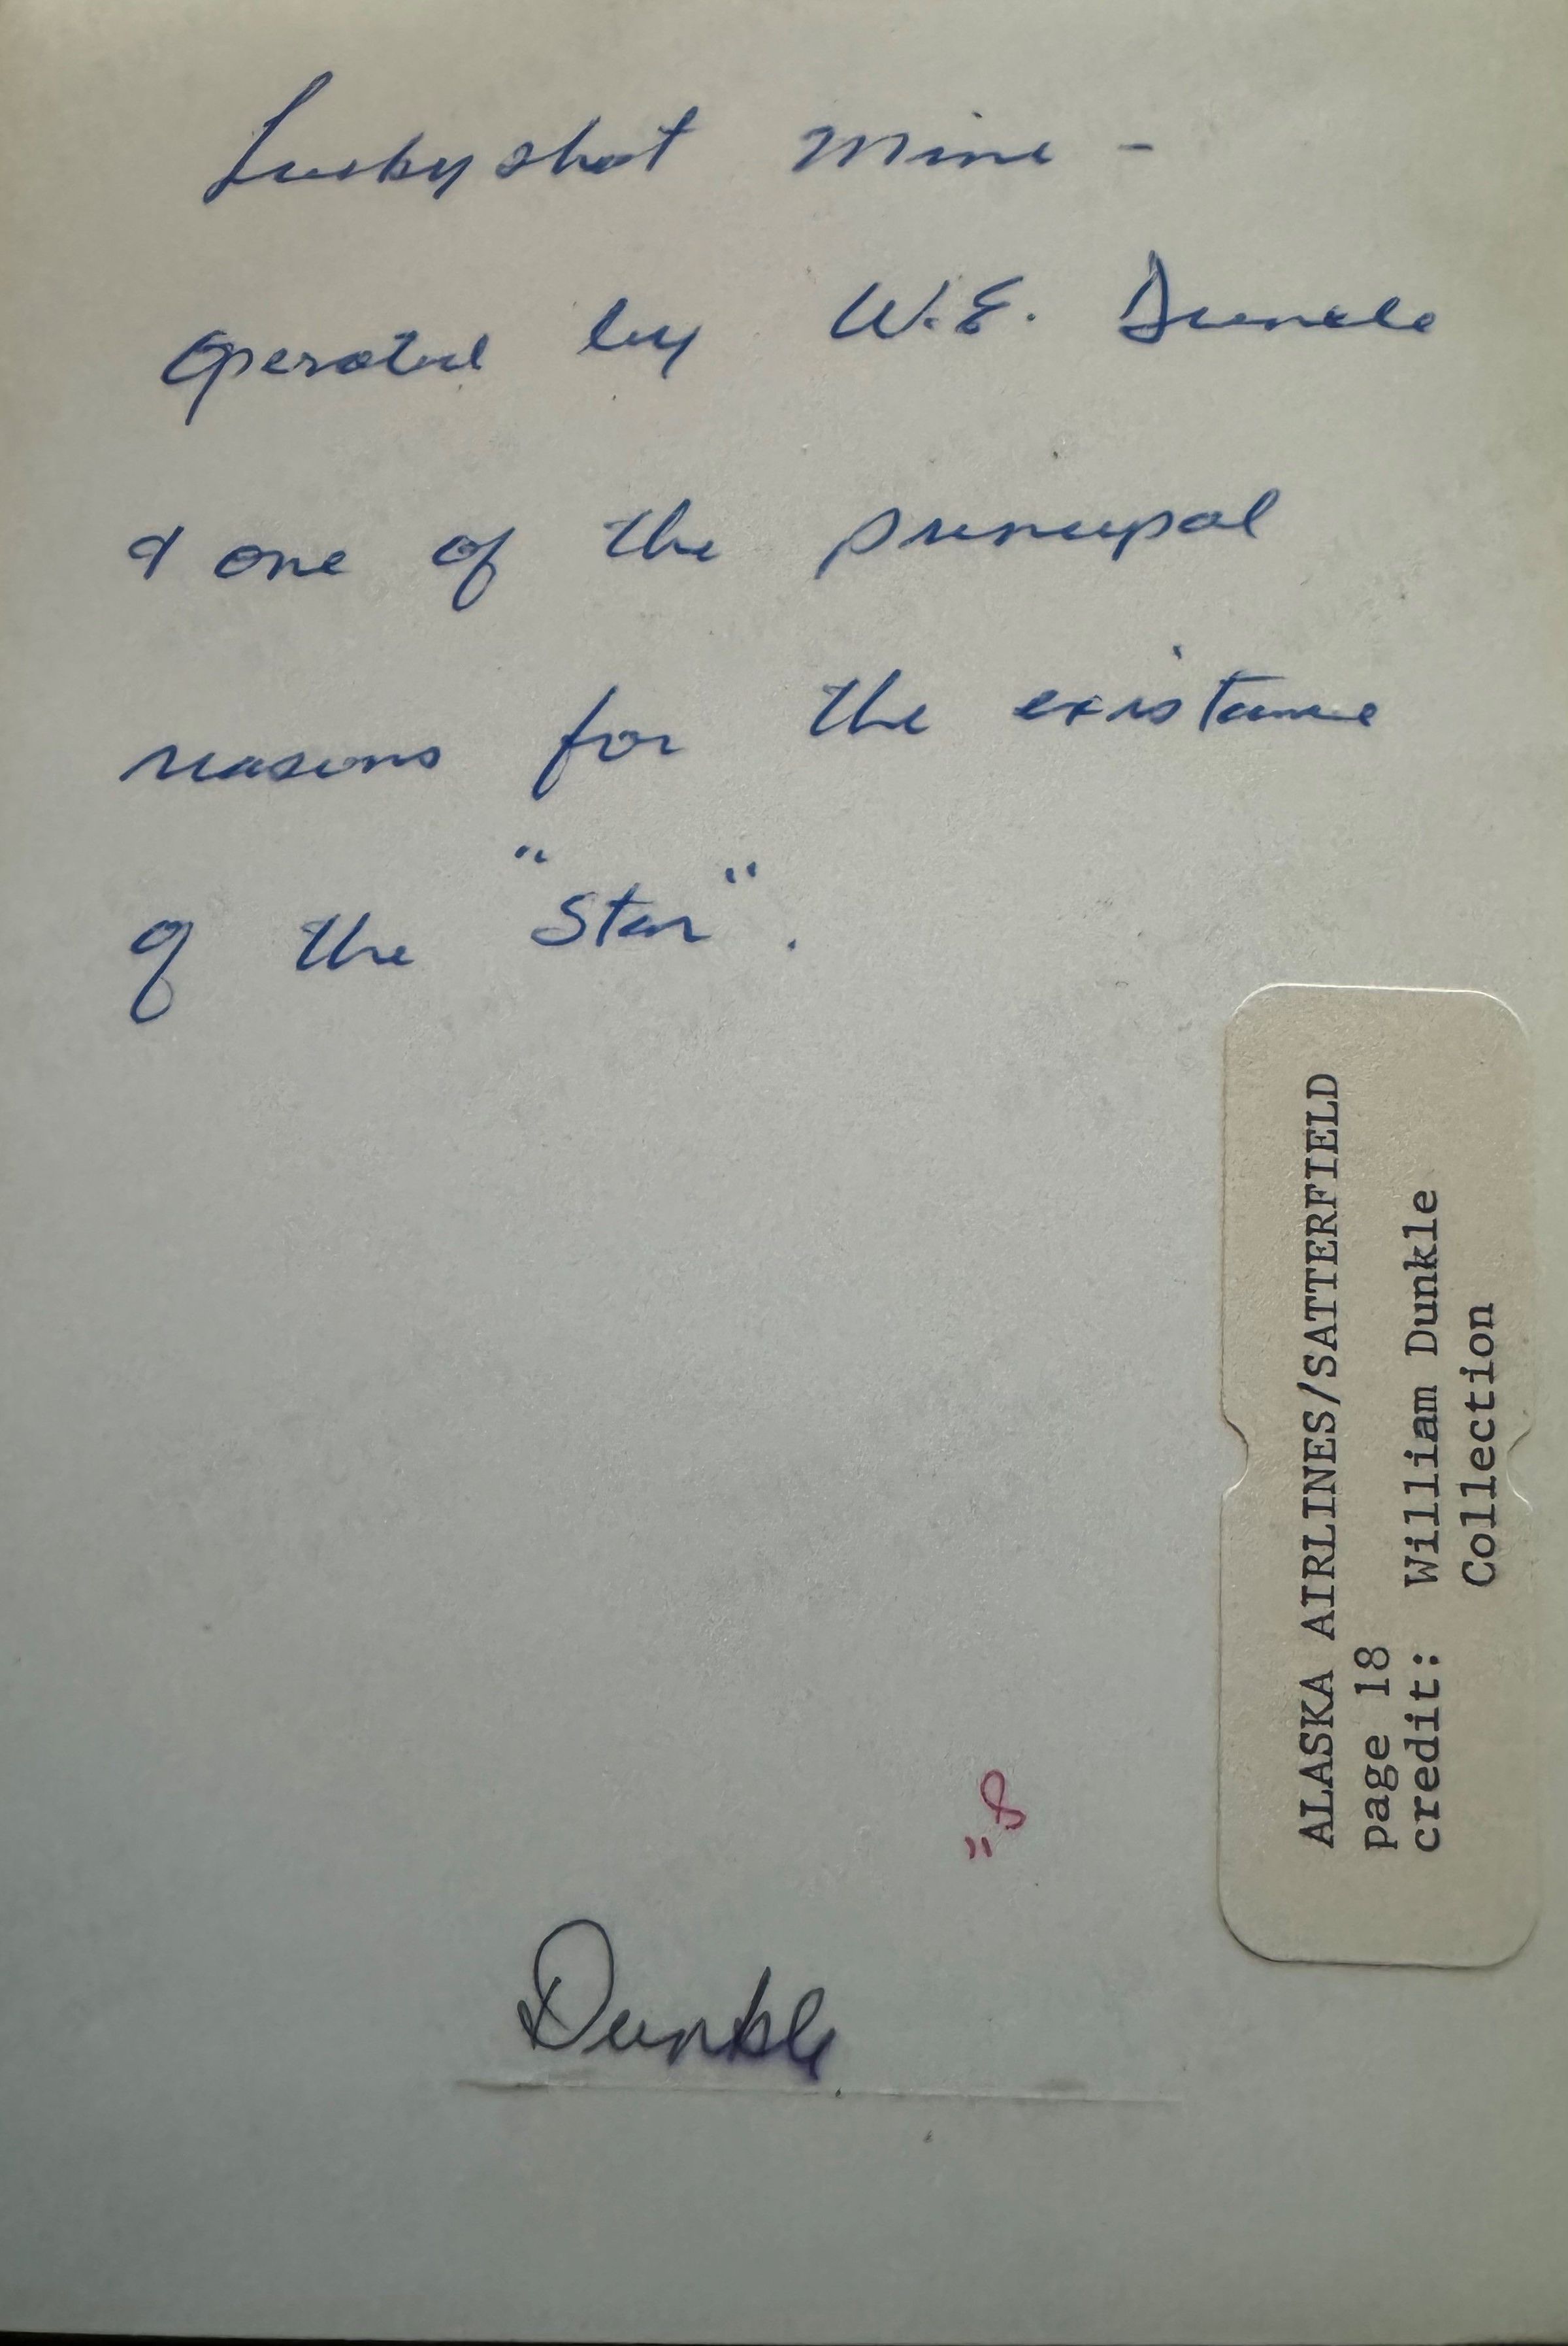 Luckyshot Mine -
Operated by W.E. Dunkle
& one of the principal
reasons for the existance
of the "Star".
ALASKA AIRLINES/SATTERFIELD
page 18
credit: William Dunkle
Collection
Dunkle